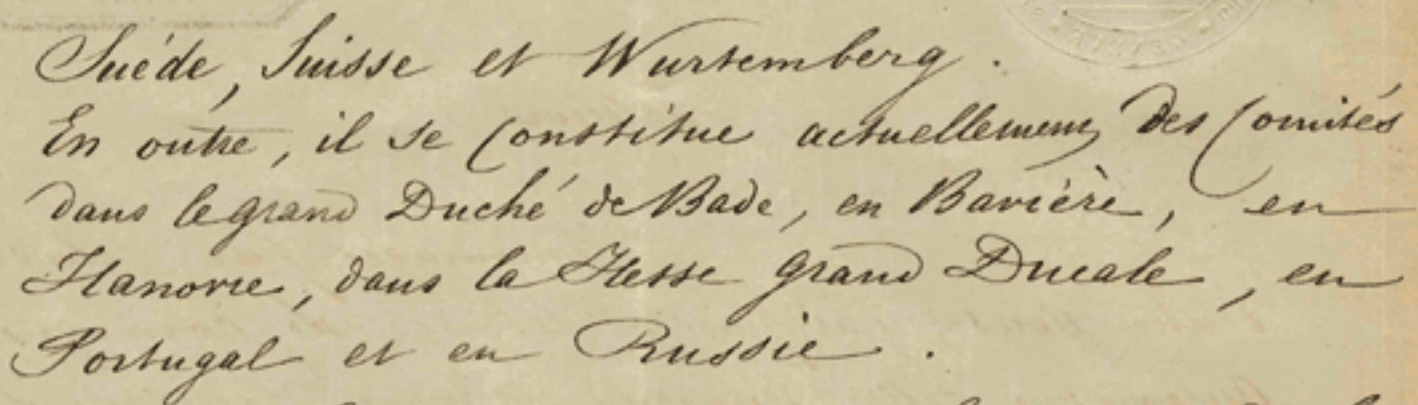 Suéde, Suisse et Wurtemberg.
En outre, il se Constitue actuellement des Comités
dans le grand Duché de Bade, en Bavière, en
Hanovre, dans la Hesse grand Ducale, en
Portugal et en Russie.